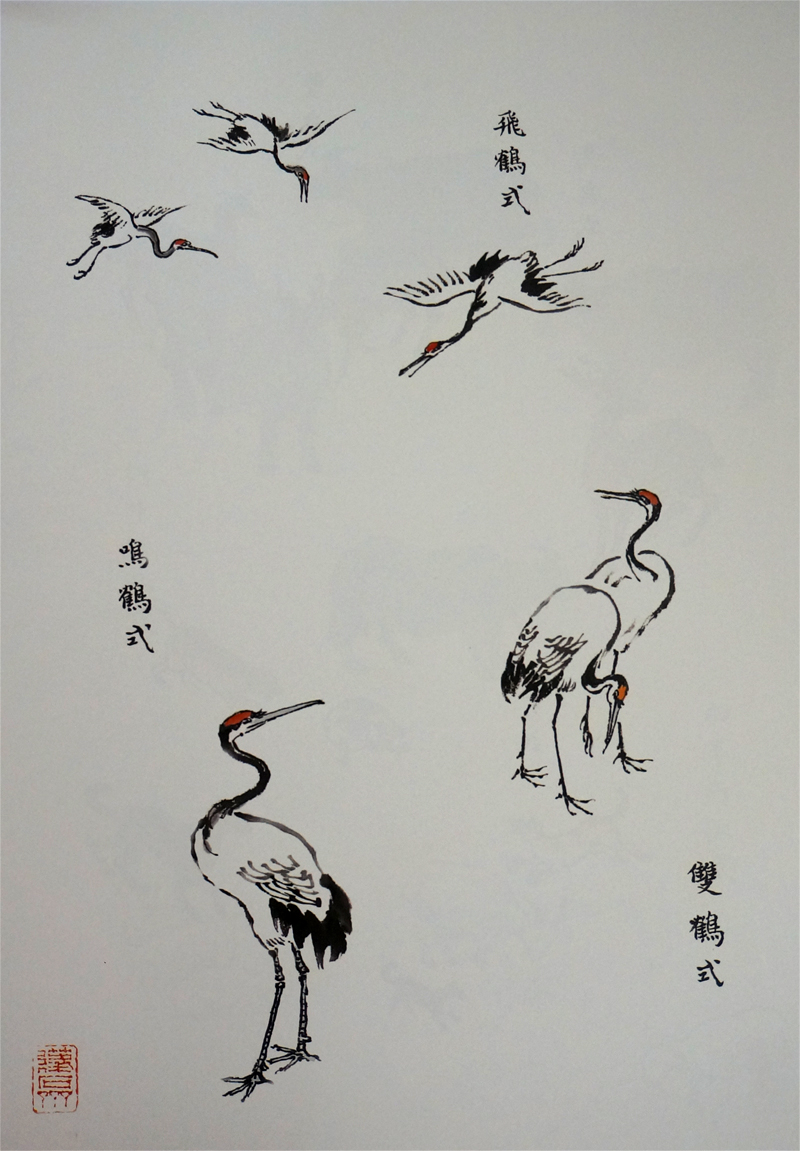 飛鶴式
鳴鶴式
雙鶴式